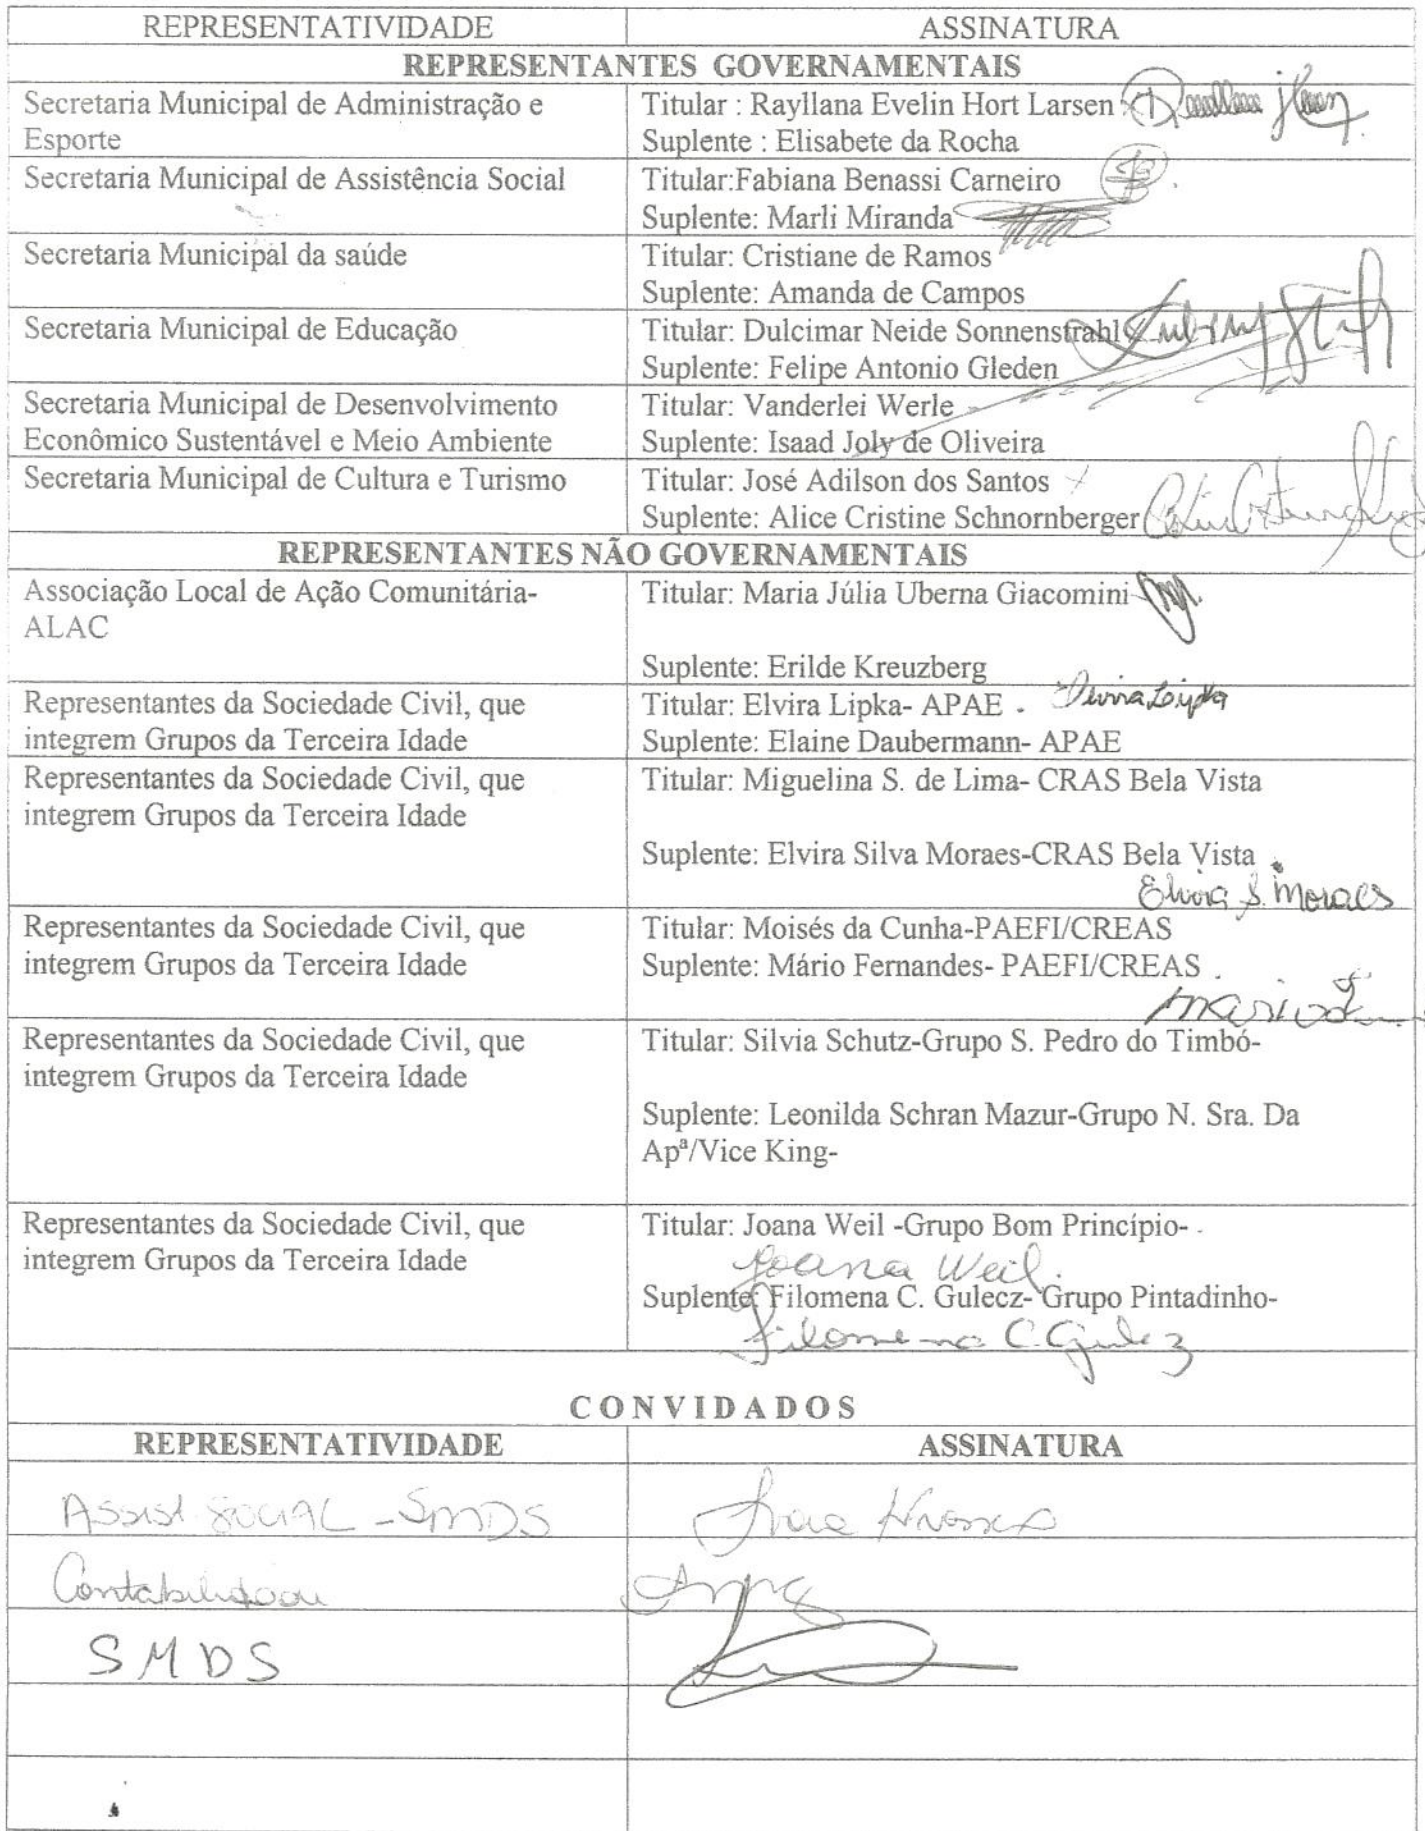 REPRESENTATIVIDADE
ASSINATURA
REPRESENTANTES GOVERNAMENTAIS
Secretaria Municipal de Administração e
Esporte
Titular : Rayllana Evelin Hort Larsen
Suplente : Elisabete da Rocha
Secretaria Municipal de Assistência Social
Titular:Fabiana Benassi Carneiro
Suplente: Marli Miranda
Secretaria Municipal da saúde
Titular: Cristiane de Ramos
Suplente: Amanda de Campos
Secretaria Municipal de Educação
Titular: Dulcimar Neide Sonnenstrahl
Suplente: Felipe Antonio Gleden
Secretaria Municipal de Desenvolvimento
Econômico Sustentável e Meio Ambiente
Titular: Vanderlei Werle
Suplente: Isaad Joly de Oliveira
Secretaria Municipal de Cultura e Turismo
Titular: José Adilson dos Santos
Suplente: Alice Cristine Schnornberger
REPRESENTANTES NÃO GOVERNAMENTAIS
Associação Local de Ação Comunitária-
ALAC
Titular: Maria Júlia Uberna Giacomini
Suplente: Erilde Kreuzberg
Representantes da Sociedade Civil, que
integrem Grupos da Terceira Idade
Titular: Elvira Lipka- APAE -
Elvira Lipka
Suplente: Elaine Daubermann- APAE
Representantes da Sociedade Civil, que
integrem Grupos da Terceira Idade
Titular: Miguelina S. de Lima- CRAS Bela Vista
Suplente: Elvira Silva Moraes-CRAS Bela Vista
Elvira S. Moraes
Representantes da Sociedade Civil, que
integrem Grupos da Terceira Idade
Titular: Moisés da Cunha-PAEFI/CREAS
Suplente: Mário Fernandes- PAEFI/CREAS
Representantes da Sociedade Civil, que
integrem Grupos da Terceira Idade
Titular: Silvia Schutz-Grupo S. Pedro do Timbó-
Suplente: Leonilda Schran Mazur-Grupo N. Sra. Da
Apª/Vice King-
Representantes da Sociedade Civil, que
integrem Grupos da Terceira Idade
Titular: Joana Weil -Grupo Bom Princípio-
Joana Weil
Suplente: Filomena C. Gulecz- Grupo Pintadinho-
Filomena C. Gulez
CONVIDADOS
REPRESENTATIVIDADE
ASSINATURA
Assist Social - SMDS
Contabilidade
SMDS